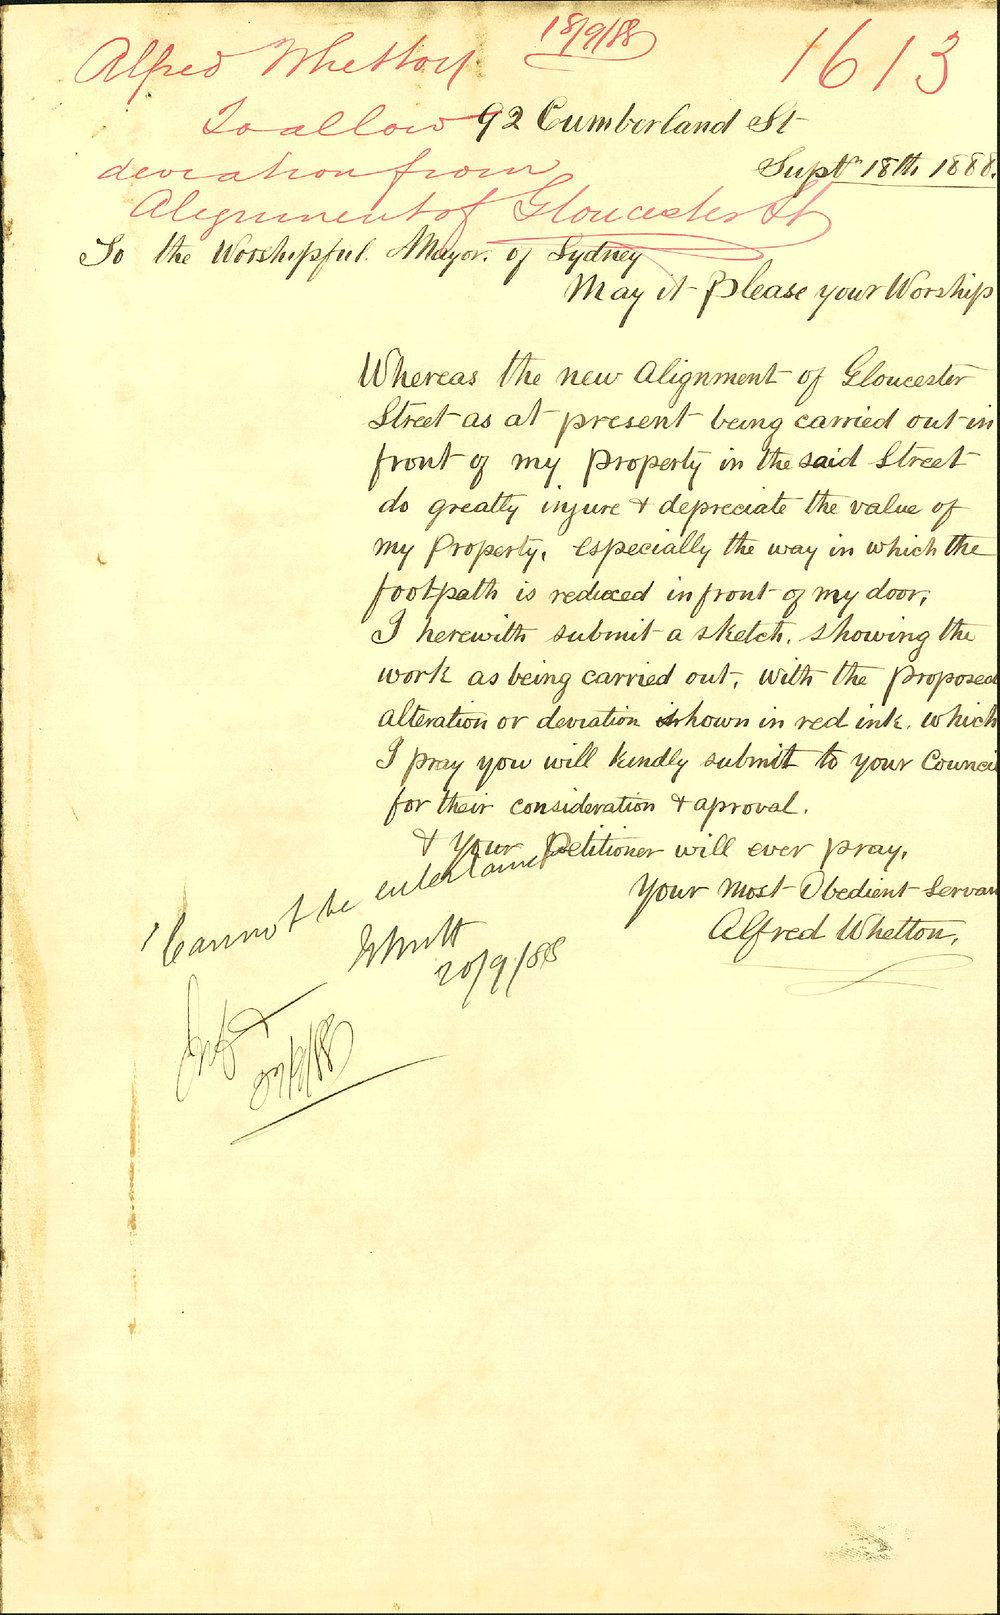 18/9/88
1613
Alfred Whetton
To allow
deviation from
Alignment of Gloucester St
92 Cumberland St
Supt 18th 1888.
To the Worshipful. Mayor. of Sydney
May it please your Worship
Whereas the new Alignment of Gloucester
Street as at present being carried out in
front of my property in the said Street
do greatly injure & depreciate the value of
my Property, especially the way in which the
footpath is reduced in front of my door,
I herewith submit a sketch, showing the
work as being carried out, with the proposed
alteration or deviation shown in red ink. which
I pray you will kindly submit to your Council
for their consideration & aproval.
& Your Petitioner will ever pray,
Your most Obedient Servan
Alfred Whetton,
Cannot be entertained
20/9/88